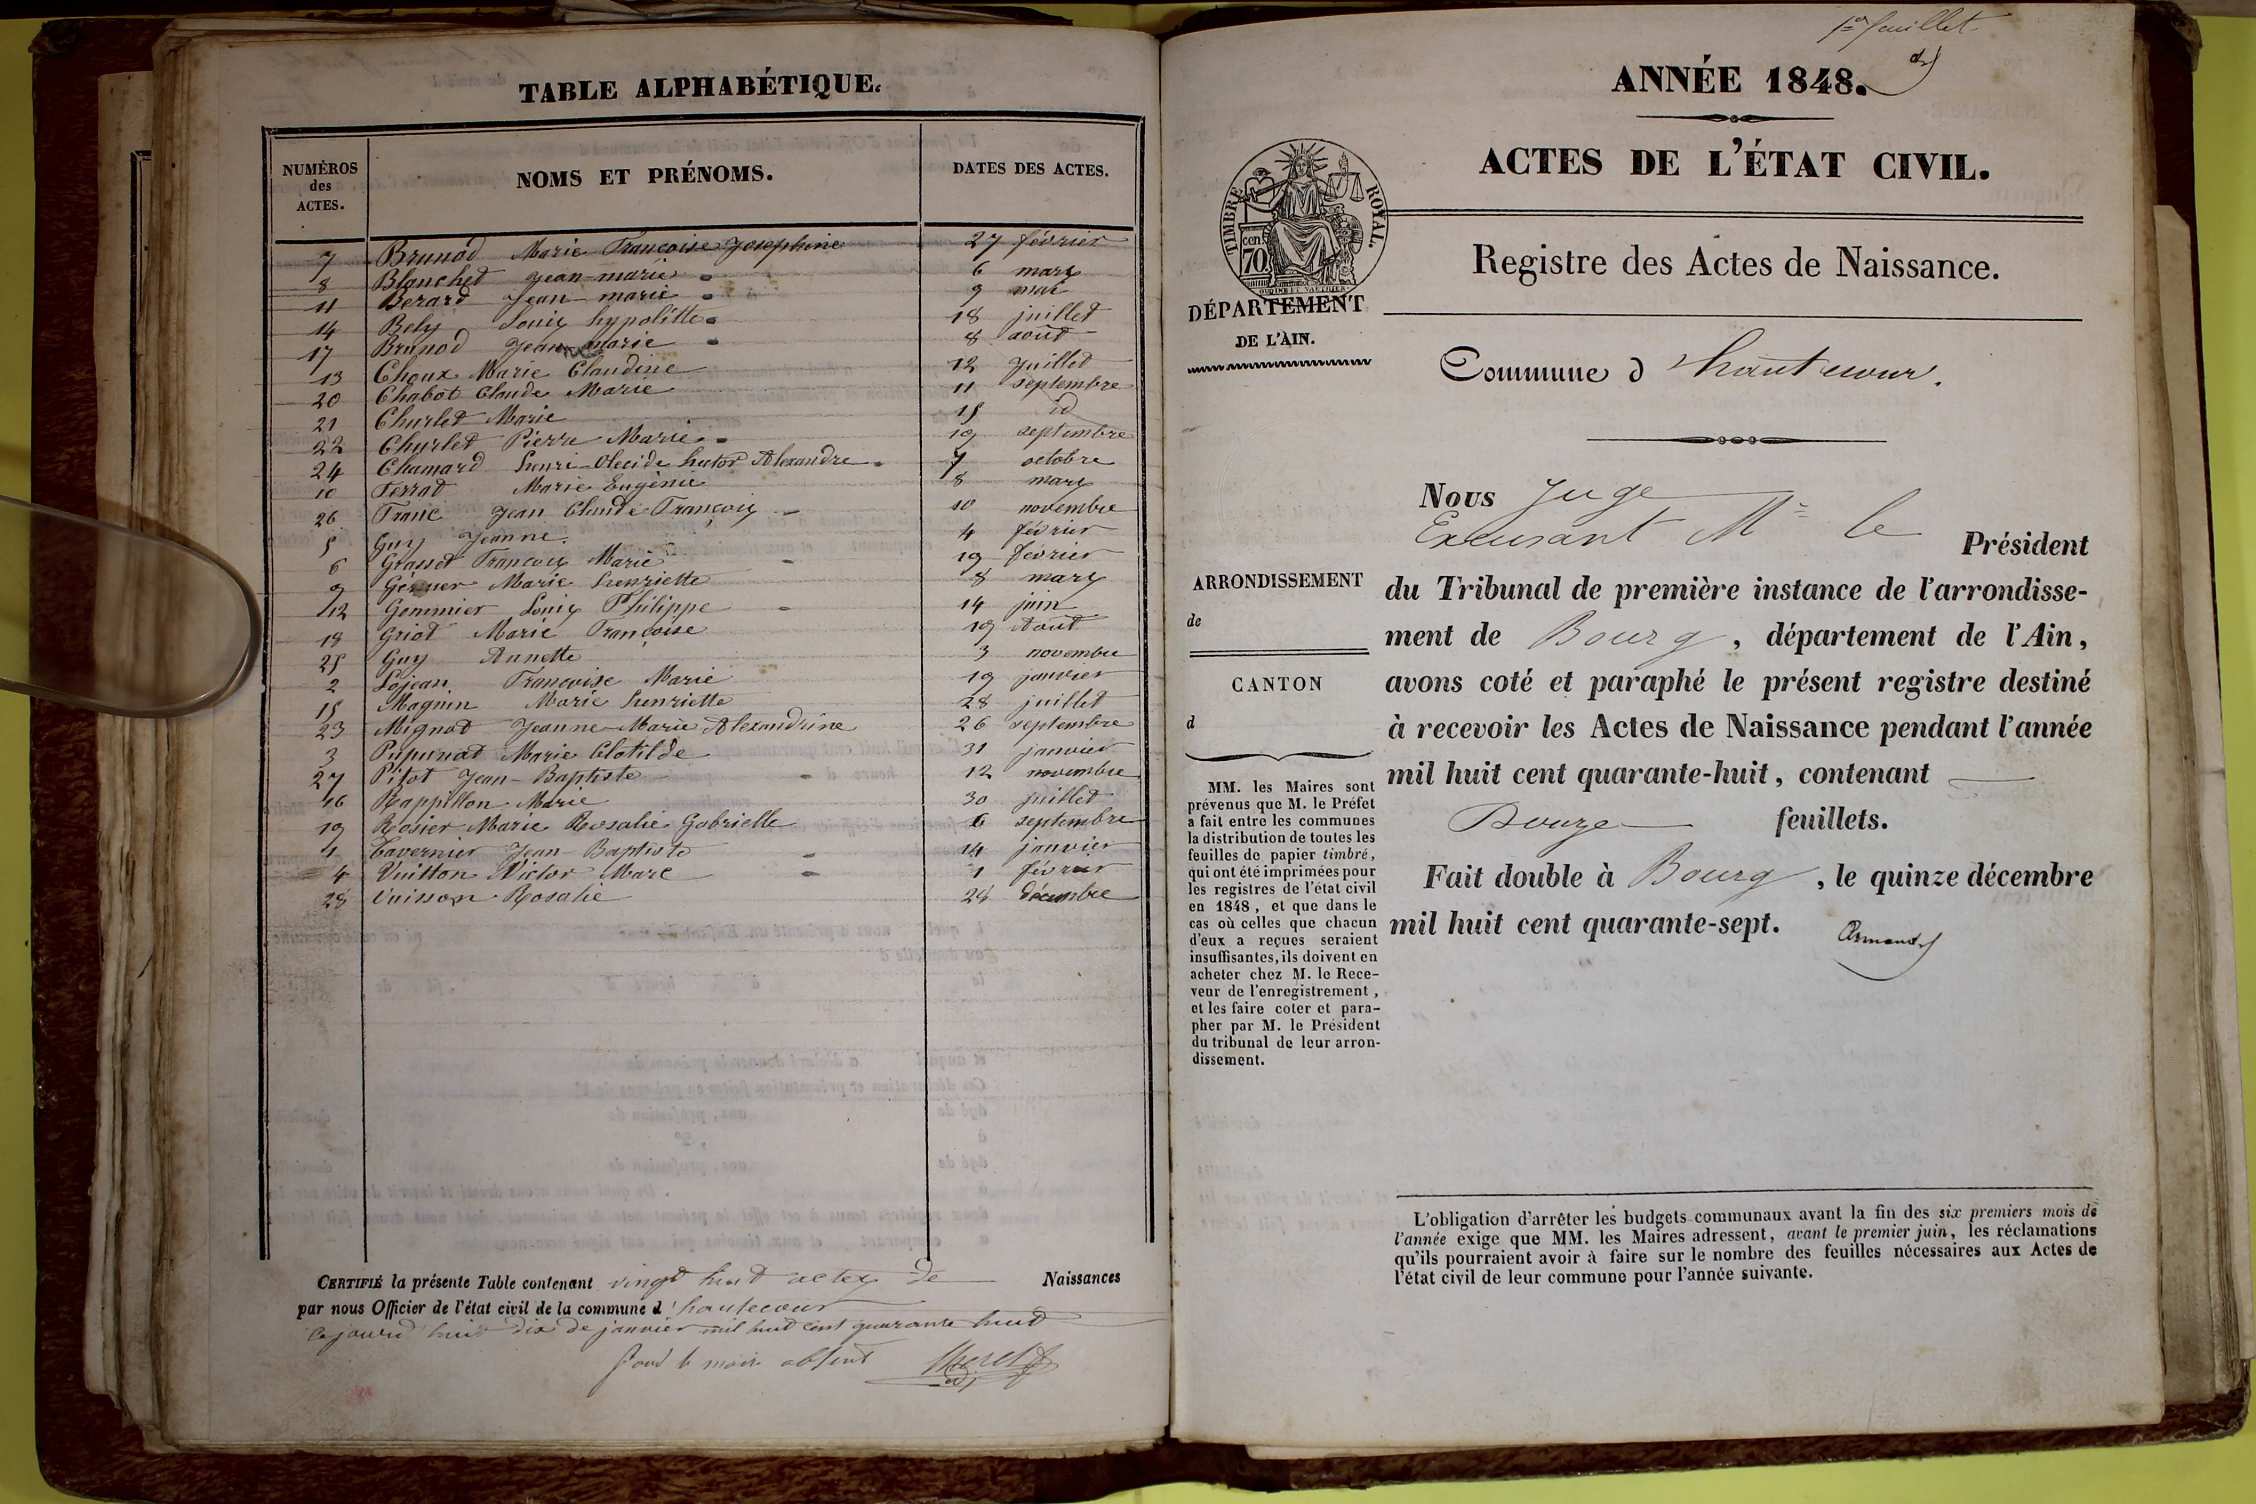 TABLE ALPHABÉTIQUE.
NUMÉROS des ACTES.
NOMS ET PRÉNOMS.
DATES DES ACTES.
7 Brunod Marie Françoise Josephine 27 février
8 Blanchet Jean marie 6 mars
11 Berard Jean marie 9 mai
14 Bely Louis hypolitte 18 juillet
17 Brunod Jean marie 8 août
13 Choux Marie Claudine 12 Juillet
20 Chabot Claude Marie 11 septembre
21 Churlet Marie 15 id
22 Churlet Pierre Marie 19 septembre
24 Chamard henri Olecide hector Alexandre 7 octobre
10 Ferrat Marie Eugénie 8 mars
26 Franc Jean Claude François 10 novembre
5 Guy Jeanne 4 février
6 Grasset François Marie 19 février
9 Marie henriette 8 mars
12 Gommier Louis Philippe 14 juin
18 Griot Marie Françoise 19 Août
25 Guy Annette 3 novembre
2 Lojean Françoise Marie 19 janvier
15 Magnin Marie henriette 28 juillet
23 Mignot Jeanne Marie Alexandrine 26 septembre
3 Marie Clotilde 31 janvier
27 Pitot Jean-Baptiste 12 novembre
16 Rappillon Marie 30 juillet
19 Rosier Marie Rosalie Gabrielle 6 septembre
1 Tavernier Jean-Baptiste 14 janvier
4 Vuitton Victor Marc 1 février
28 Vuisson Rosalie 28 décembre
CERTIFIÉ la présente Table contenant vingt huit actes de Naissances
par nous Officier de l'état civil de la commune d'hautecour
ce jourd'hui dix de janvier mil huit cent quarante huit
pour le maire absent
1er feuillet
ANNÉE 1848.
ACTES DE L'ÉTAT CIVIL.
TIMBRE ROYAL.
cen. 70
Registre des Actes de Naissance.
DÉPARTEMENT
DE L'AIN.
Commune d hautecour.
Nous Juge
Excusant Mr le Président
du Tribunal de première instance de l'arrondisse-
ment de Bourg, département de l'Ain,
avons coté et paraphé le présent registre destiné
à recevoir les Actes de Naissance pendant l'année
mil huit cent quarante-huit, contenant
Douze feuillets.
Fait double à Bourg, le quinze décembre
mil huit cent quarante-sept.
Armand
ARRONDISSEMENT
de
CANTON
d
MM. les Maires sont
prévenus que M. le Préfet
a fait entre les communes
la distribution de toutes les
feuilles de papier timbré,
qui ont été imprimées pour
les registres de l'état civil
en 1848, et que dans le
cas où celles que chacun
d'eux a reçues seraient
insuffisantes, ils doivent en
acheter chez M. le Rece-
veur de l'enregistrement,
et les faire coter et para-
pher par M. le Président
du tribunal de leur arron-
dissement.
L'obligation d'arrêter les budgets communaux avant la fin des six premiers mois de
l'année exige que MM. les Maires adressent, avant le premier juin, les réclamations
qu'ils pourraient avoir à faire sur le nombre des feuilles nécessaires aux Actes de
l'état civil de leur commune pour l'année suivante.